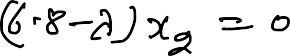 (6.8-λ)x₂ = 0